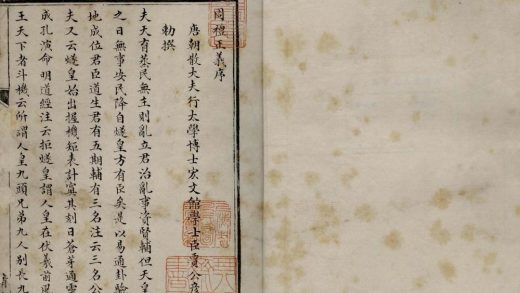 周禮正義序
唐朝散大夫行太學博士宏文館學士臣賈公彥
勅撰
夫天育蒸民無主則亂立君治亂事資賢輔但天皇
之日無事安民降自燧皇方有臣矣是以易通卦驗
地成位君臣道生君有五期輔有三名注云三公
夫又云燧皇始出握機矩表計寘其刻日蒼芽通靈
成孔演命明道經注云拒燧皇謂人皇在伏羲前風
王天下者斗機云所謂人皇九頭兄弟九人別長九